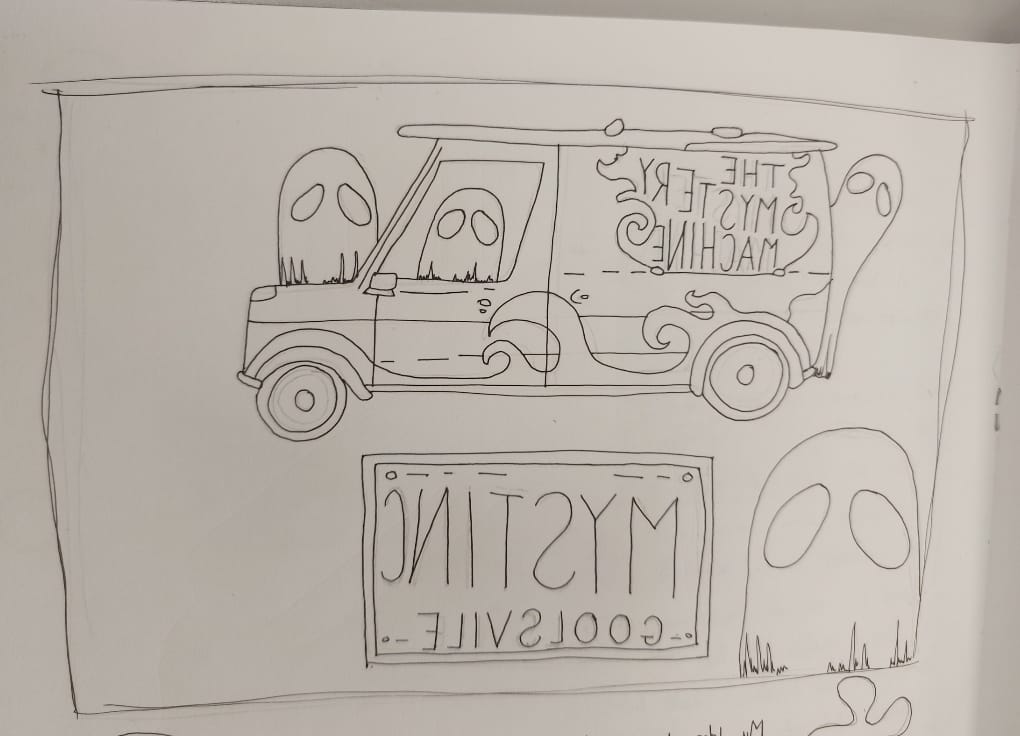 THE
MYSTERY
MACHINE
MYSTINC
GOOLSVILE